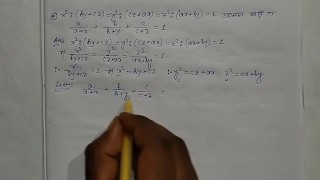 x²:(by+cz) = y²:(cz+ax) = z²:(ax+by) = 1
a/(a+x) + b/(b+y) + c/(c+z) = 1
x²:(by+cz) = y²:(cz+ax) = z²:(ax+by) = 1
x²/(by+cz) = y²/(cz+ax) = z²/(ax+by) = 1
∴ x²/(by+cz) = 1 ⇒ x² = by+cz ∴ y² = cz+ax z² = ax+by
a/(a+x) + b/(b+y) + c/(c+z) =